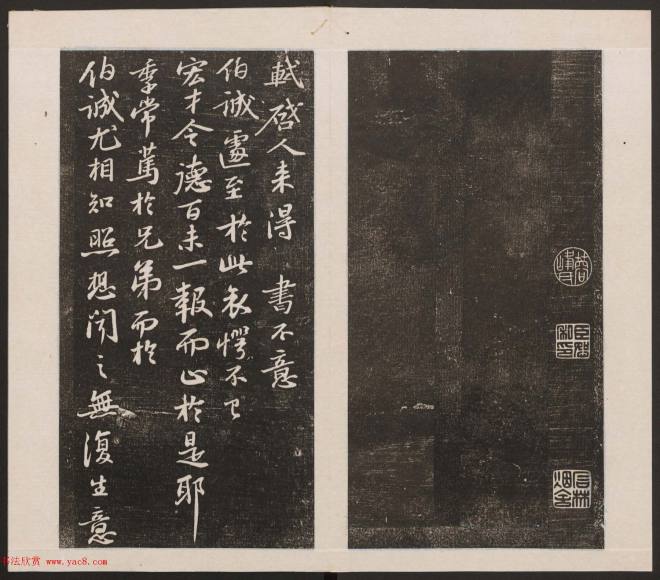 軾啓人來得 書不意
伯誠遽至於此哀愕不已
宏才令德百未一報而止於是耶
季常篤於兄弟而於
伯誠尤相知照想聞之無復生意
书法欣赏 www.yac8.com